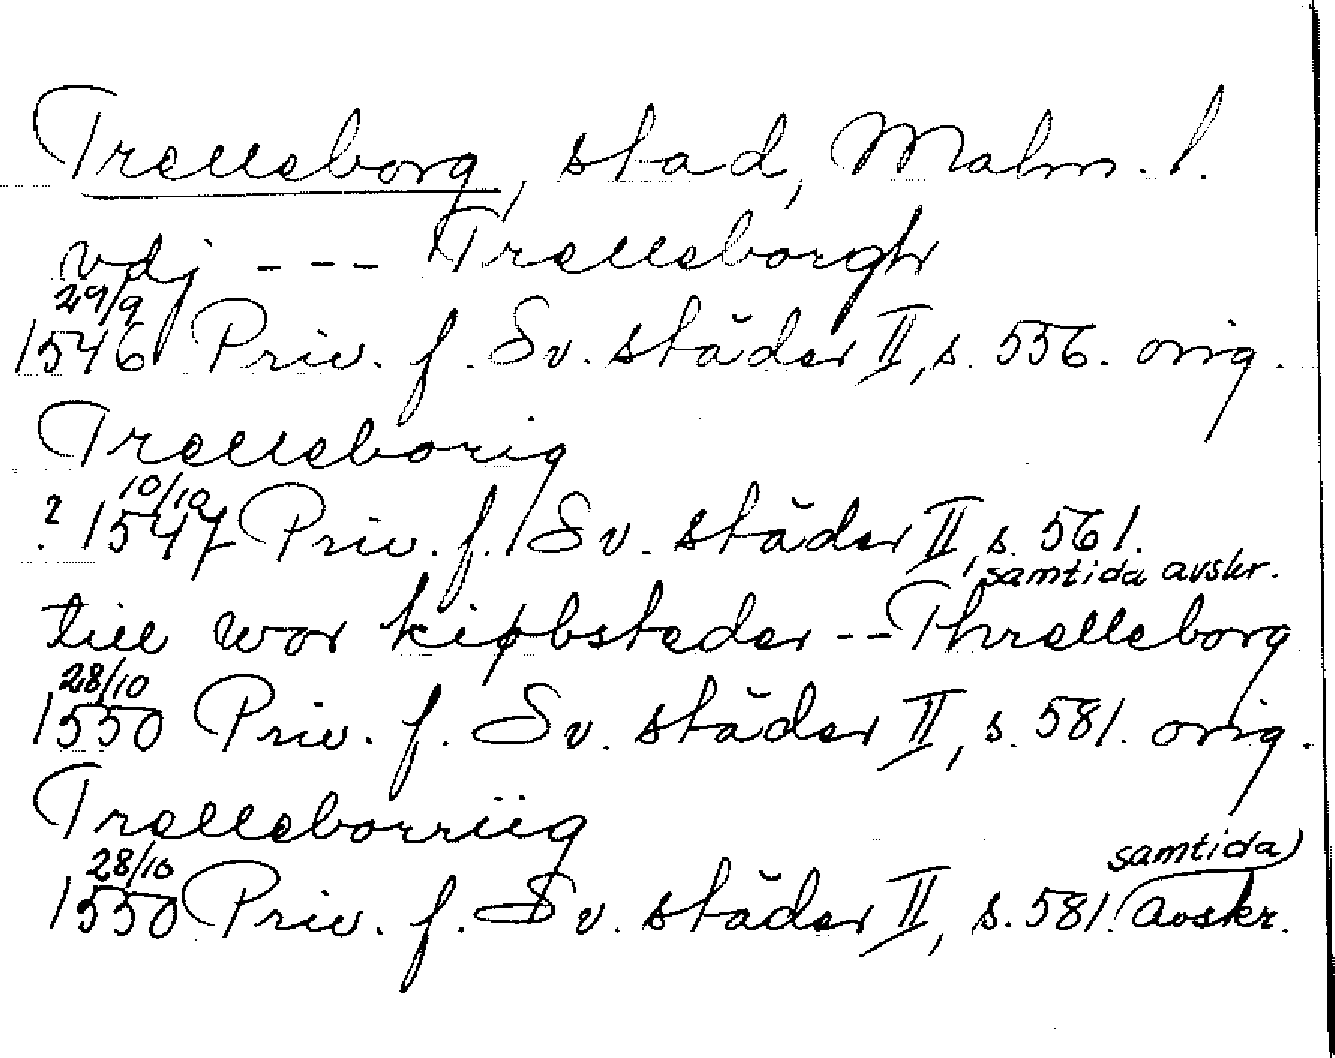 Trelleborg, stad, Malm. l.
vdj --- Trelleborgh
29/9
1546 Priv. f. Sv. städer II, s. 556. orig.
Trelleborig
10/10
? 1547 Priv. f. Sv. städer II, s. 561.
samtida avskr.
till wor kiøbsteder -- Threlleborg
28/10
1550 Priv. f. Sv. städer II, s. 581. orig.
Trelleborriig
28/10 samtida
1550 Priv. f. Sv. städer II, s. 581. avskr.